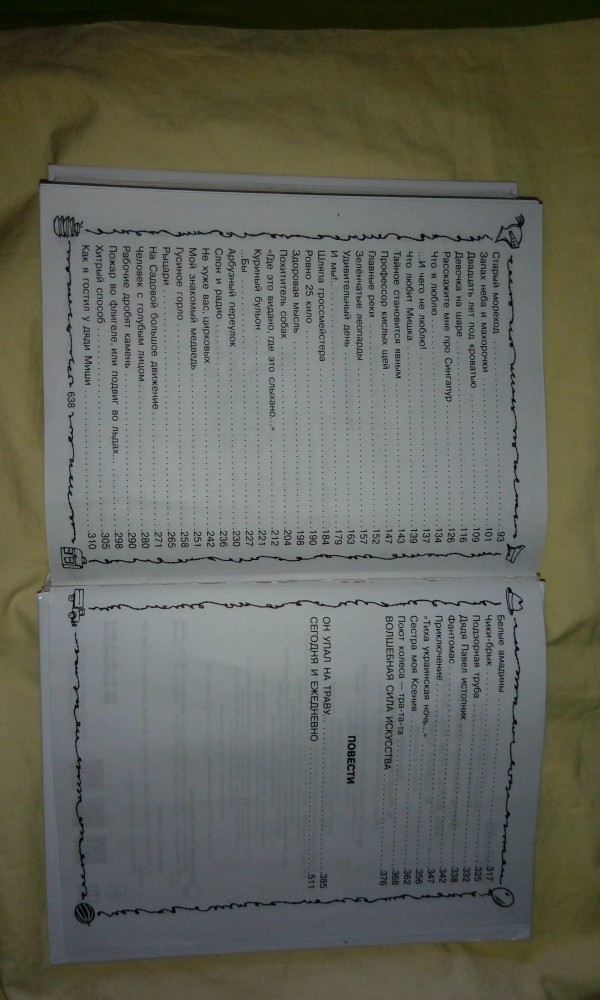 Старый мореход . . . . . . . . . . 93
Запах неба и махорочки . . . . . . . . . . 101
Двадцать лет под кроватью . . . . . . . . . . 109
Девочка на шаре . . . . . . . . . . 116
Расскажите мне про Сингапур . . . . . . . . . . 126
Что я люблю . . . . . . . . . . 134
...И чего не люблю! . . . . . . . . . . 137
Что любит Мишка . . . . . . . . . . 139
Тайное становится явным . . . . . . . . . . 143
Профессор кислых щей . . . . . . . . . . 147
Главные реки . . . . . . . . . . 152
Зелёнчатые леопарды . . . . . . . . . . 157
Удивительный день . . . . . . . . . . 163
И мы!.. . . . . . . . . . . 179
Шляпа гроссмейстера . . . . . . . . . . 184
Ровно 25 кило . . . . . . . . . . 190
Здоровая мысль . . . . . . . . . . 198
Похититель собак . . . . . . . . . . 204
«Где это видано, где это слыхано...» . . . . . . . . . . 212
Куриный бульон . . . . . . . . . . 221
...Бы . . . . . . . . . . 227
Арбузный переулок . . . . . . . . . . 230
Слон и радио . . . . . . . . . . 236
Не хуже вас, цирковых . . . . . . . . . . 242
Мой знакомый медведь . . . . . . . . . . 251
Гусиное горло . . . . . . . . . . 258
Рыцари . . . . . . . . . . 265
На Садовой большое движение . . . . . . . . . . 271
Человек с голубым лицом . . . . . . . . . . 280
Рабочие дробят камень . . . . . . . . . . 290
Пожар во флигеле, или подвиг во льдах... . . . . . . . . . . 298
Хитрый способ . . . . . . . . . . 305
Как я гостил у дяди Миши . . . . . . . . . . 310
638
Белые амадины . . . . . . . . . . 317
Чики-брык . . . . . . . . . . 325
Подзорная труба . . . . . . . . . . 332
Дядя Павел истопник . . . . . . . . . . 338
Фантомас . . . . . . . . . . 342
Приключение . . . . . . . . . . 347
«Тиха украинская ночь...» . . . . . . . . . . 356
Сестра моя Ксения . . . . . . . . . . 362
Поют колеса — тра-та-та . . . . . . . . . . 368
ВОЛШЕБНАЯ СИЛА ИСКУССТВА . . . . . . . . . . 376
ПОВЕСТИ
ОН УПАЛ НА ТРАВУ... . . . . . . . . . . 385
СЕГОДНЯ И ЕЖЕДНЕВНО . . . . . . . . . . 511